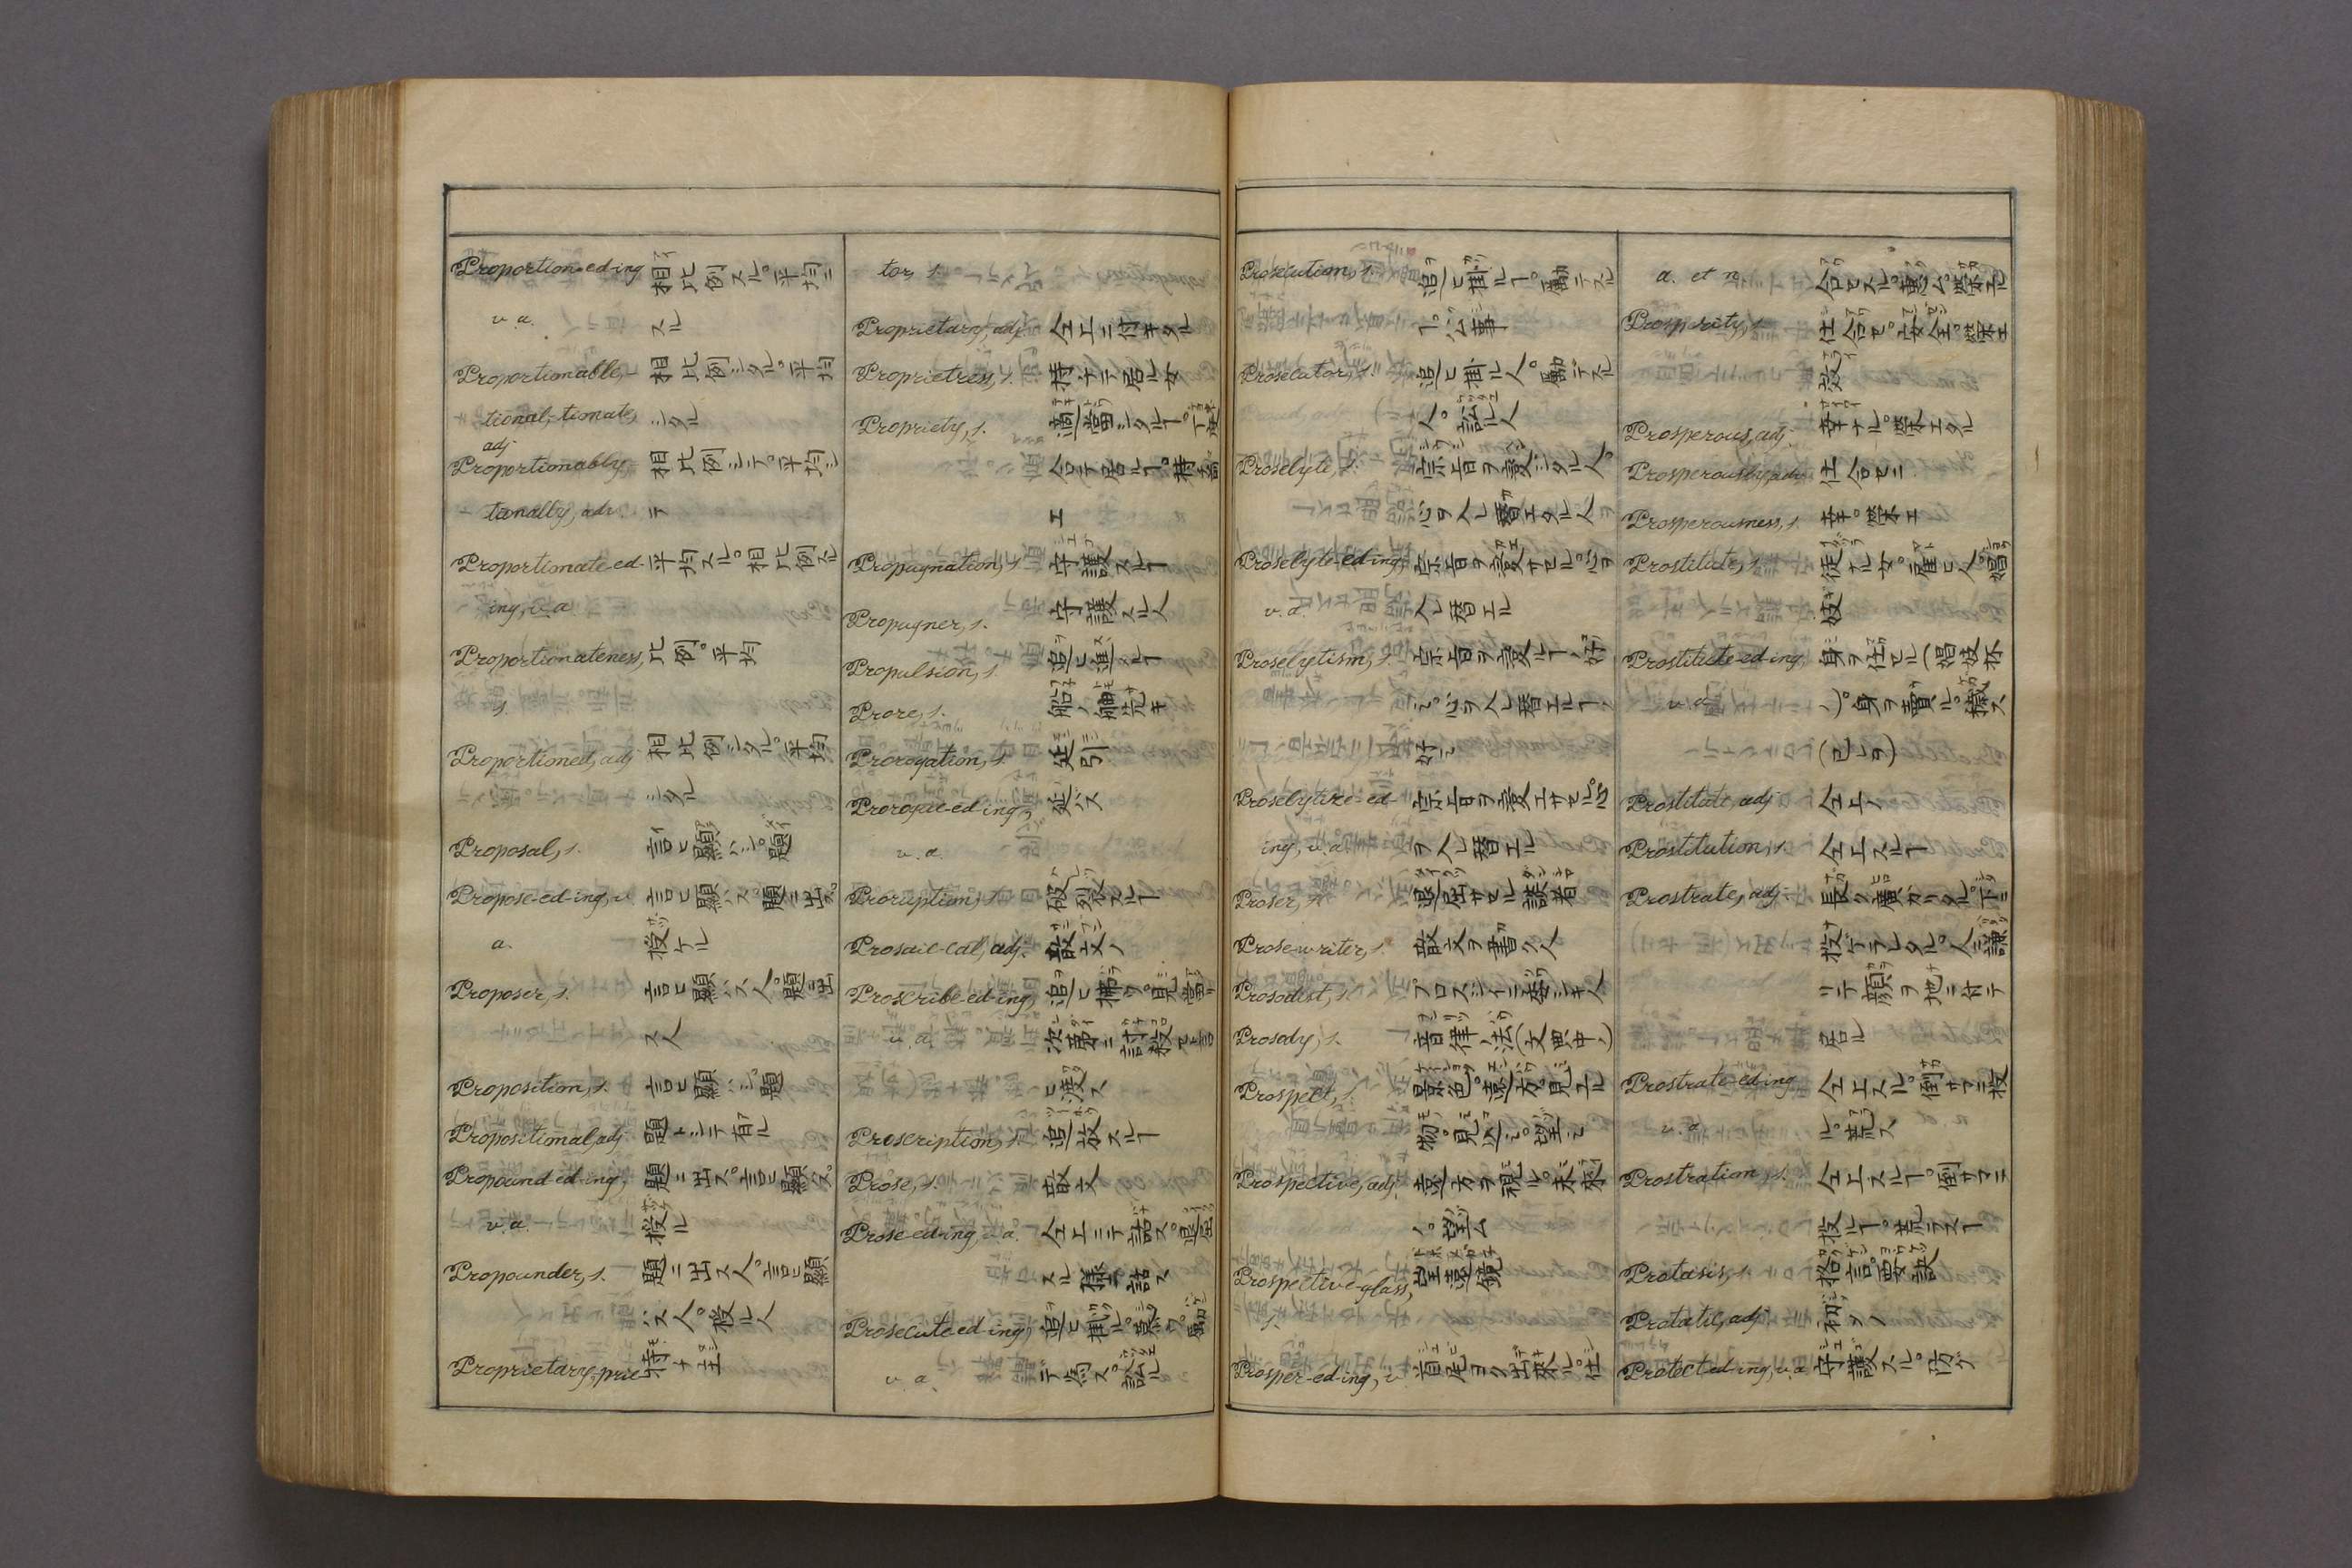 Proportion-ed-ing 相比例スル。平均ニ
v. a. スル
Proportionable,- 相比例シタル。平均
tional,-tionate, シタル
adj.
Proportionably- 相比例シテ。平均シ
tionally, adv. テ
Proportionate-ed- 平均スル。相比例スル
ing, v. a.
Proportionateness, 比例。平均
s.
Proportioned, adj 相比例シタル。平均
シタル
Proposal, s. 言ヒ顕ハシ。題
Propose-ed-ing, v. 言ヒ顕ハス。題ニ出ス。
a. 授ケル
Proposer, s. 言ヒ顕ハス人。題ニ出
ス人
Proposition, s. 言ヒ顕ハシ。題
Propositional, adj. 題トシテ有ル
Propound-ed-ing, 題ニ出ス。言ヒ顕ス。
v. a. 授ル
Propounder, s. 題ニ出ス人。言ヒ顕
ハス人。授ル人
Proprietary,-prie- 持チ主
tor, s.
Proprietary, adj. 仝上ニ付キタル
Proprietress, s. 持チテ居ル女
Propriety, s. 適当シタルヿ。
合テ居ルヿ。
エ
Propugnation, s. 守護スルヿ
Propugner, s. 守護スル人
Propulsion, s. 追ヒ進ムルヿ
Prore, s. 船ノ舳先キ
Prorogation, s. 延引
Prorogue-ed-ing, 延バス
v. a.
Proruption, s. 破裂スルヿ
Prosaic-cal, adj. 散文ノ
Proscribe-ed-ing, 追ヒ拂フ。見当リ
v. a. 次第ニ討殺セト言
ヒ渡ス
Proscription, s. 追放スルヿ
Prose, s. 散文
Prose-ed-ing, v. a. 仝上ニテ話ス。退屈
スル様ニ話ス
Prosecute-ed-ing, 追ヒ掛ル。
v. a. 訟ル
Prosecution, s. 追ヒ掛ルヿ。働テスル
ヿ。公事
Prosecutor, s. 追ヒ掛ル人。働デスル
人。訟ル人
Proselyte, s. 宗旨ヲ変シタル人。
心ヲ入レ替エタル人
Proselyte-ed-ing, 宗旨ヲ変サセル。心ヲ
v. a. 入レ替エル
Proselytism, s. 宗旨ヲ変ルヿ、好
ミ。心ヲ入レ替エルヿ、
好ミ
Proselytize-ed- 宗旨ヲ変エサセル。心
ing, v. a. ヲ入レ替エル
Proser, s. 退屈サセル談者
Prose-writer, s. 散文ヲ書ク人
Prosodist, s. プロスジイニ委シキ人
Prosody, s. 音律ノ法(文典中ノ)
Prospect, s. 景色。遠方。見エル
物。見込ミ。望ミ
Prospective, adj. 遠方ヲ視ル。未来
ノ。望ム
Prospective-glass, 望遠鏡
s.
Prosper-ed-ing, v. 首尾ヨク出来ル。仕
a. et n. 合セスル。恵ム。栄エル
Prosperity, s. 仕合セ。安全。栄エ
Prosperous, adj. 幸ナル。栄エタル
Prosperously, adv. 仕合セニ
Prosperousness, s. 幸。栄エ
Prostitute, s. 徒ナル女。雇ヒ人。娼
妓
Prostitute-ed-ing 身ヲ任セル(娼妓抔
v. a. ノ)。身ヲ賣ル。穢ス
(己レヲ)
Prostitute, adj. 仝上ノ
Prostitution, s. 仝上スルヿ
Prostrate, adj. 長ク廣ガリタル。下ニ
投ゲラレタル。人ニ謙
リテ顔ヲ地ニ付テ
居ル
Prostrate-ed-ing 仝上スル。倒サマニ投
v. a. ル。荒ス
Prostration, s. 仝上スルヿ。倒サマニ
投ルヿ。荒ラスヿ
Protasis, s. 格言。要訣
Protatic, adj. 初メノ
Protect-ed-ing, v. a. 守護スル。防グ